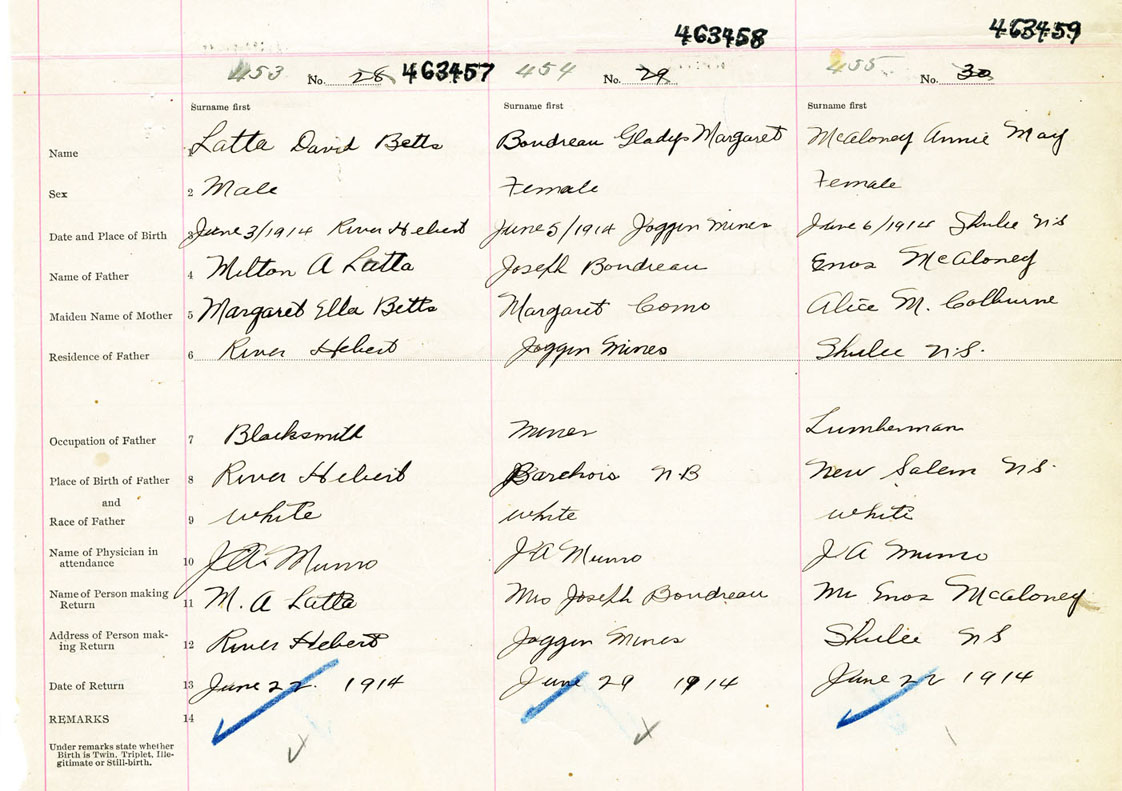 463458 463459
453 No. 28 463457 454 No. 29 455 No. 30
Surname first Surname first Surname first
Name 1 Latta David Betts Boudreau Gladys Margaret McAloney Annie May
Sex 2 Male Female Female
Date and Place of Birth 3 June 3/1914 River Hebert June 5/1914 Joggin Mines June 6/1914 Shulie N.S
Name of Father 4 Milton A Latta Joseph Boudreau Enos McAloney
Maiden Name of Mother 5 Margaret Ella Betts Margaret Como Alice M. Colburne
Residence of Father 6 River Hebert Joggin Mines Shulee N.S.
Occupation of Father 7 Blacksmith Miner Lumberman
Place of Birth of Father 8 River Hebert Barchois NB New Salem N.S.
and
Race of Father 9 White White White
Name of Physician in
attendance 10 J.A. Munro J A Munro J A Munro
Name of Person making
Return 11 M. A Latta Mrs Joseph Boudreau Mr Enos McAloney
Address of Person mak-
ing Return 12 River Hebert Joggin Mines Shulee N S
Date of Return 13 June 22. 1914 June 29 1914 June 22 1914
REMARKS 14
Under remarks state whether
Birth is Twin, Triplet, Ille-
gitimate or Still-birth.